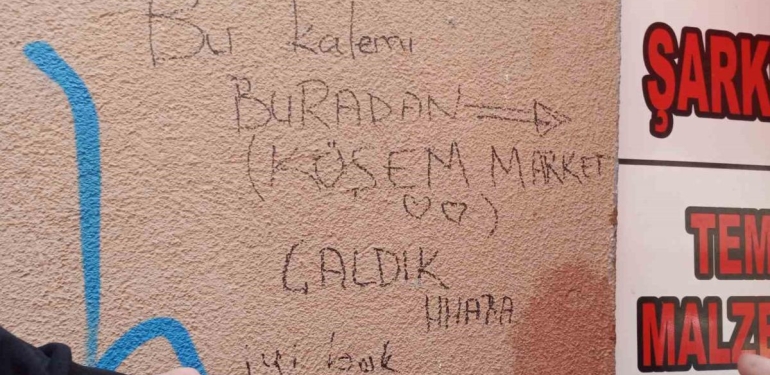 Bu kalemi
BURADAN
(KÖŞEM MARKET
)
ÇALDIK
iyi
ŞARK
TEM
MALZE